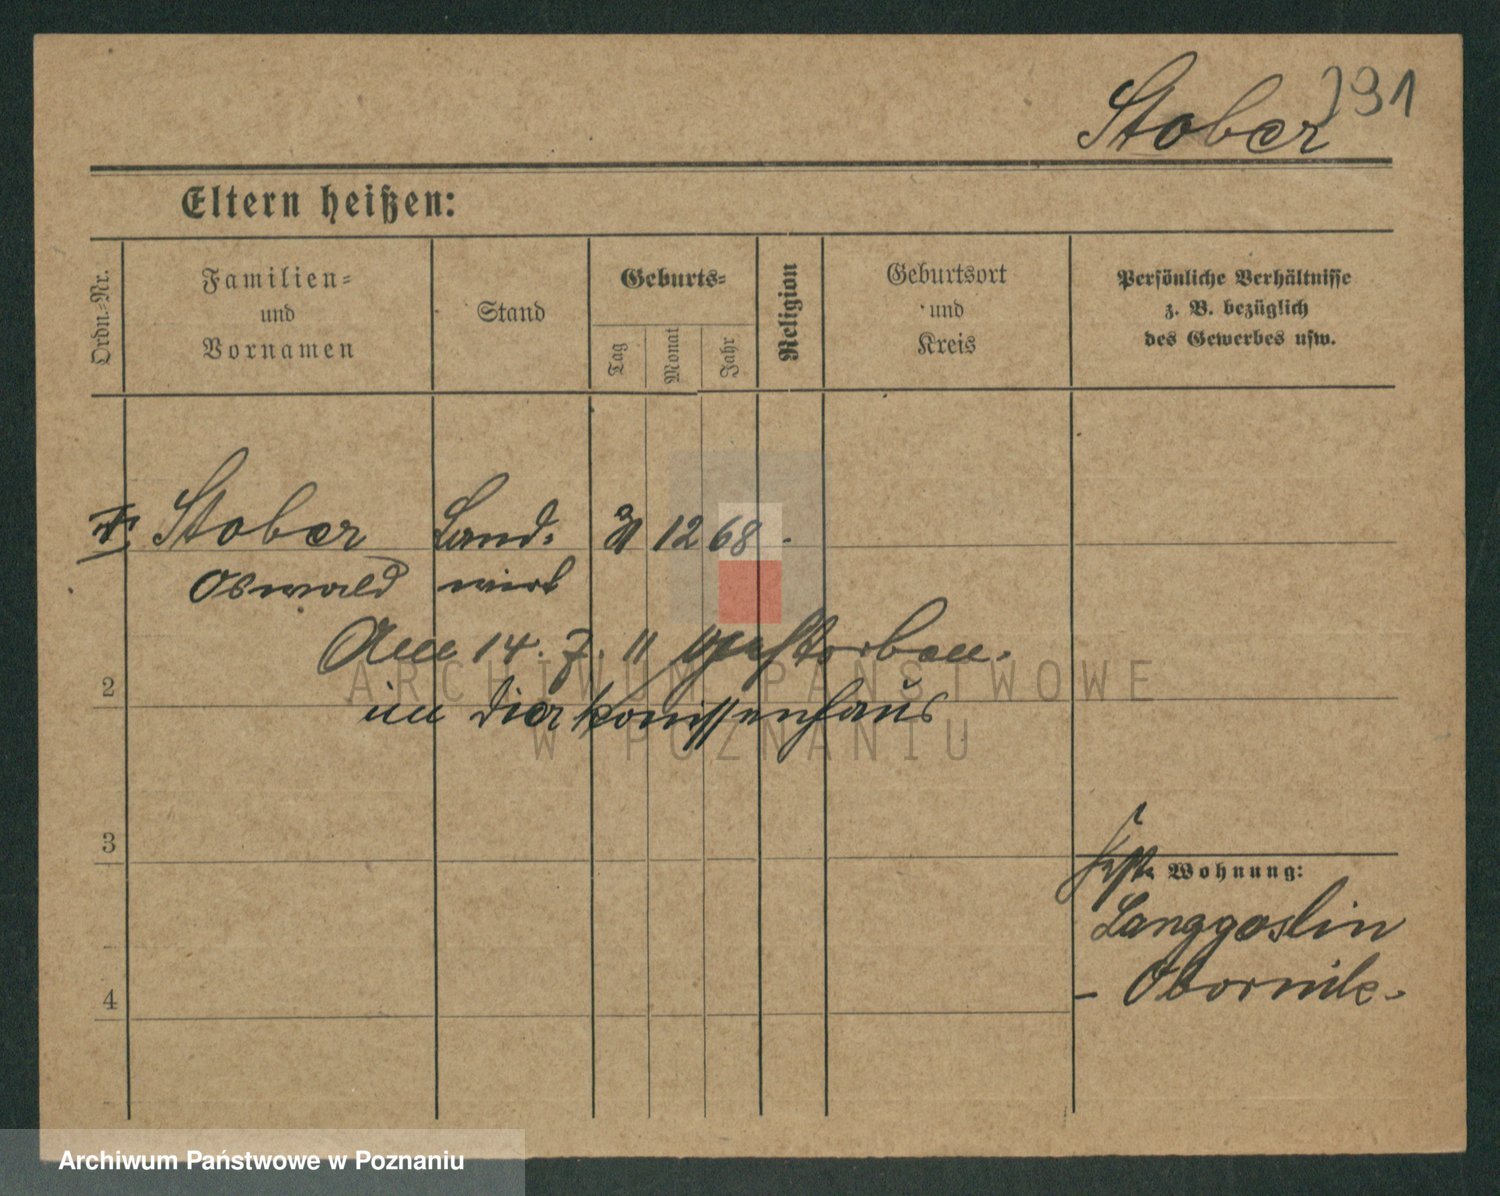 Stober 391
Eltern heißen:
Ordn.-Nr.
Familien-
und
Vornamen
Stand
Geburts-
Tag
Monat
Jahr
Religion
Geburtsort
und
Kreis
Persönliche Verhältnisse
z. B. bezüglich
des Gewerbes usw.
Stober Land- 31 12 68
Oswald wirt
Am 14. 7. 11 gestorben.
im Diakonissenhaus
2
3
4
Wohnung:
Langgoslin
- Obornik.
ARCHIWUM PAŃSTWOWE
W POZNANIU
Archiwum Państwowe w Poznaniu